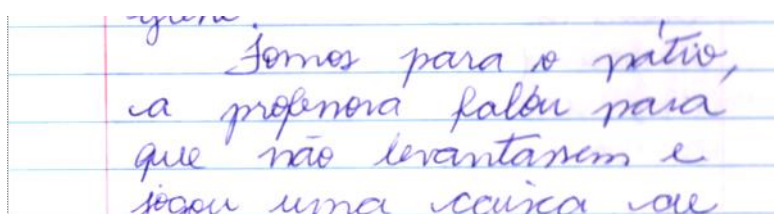 Fomos para o pátio,
a professora falou para
que não levantassem e
jogou uma caixa de